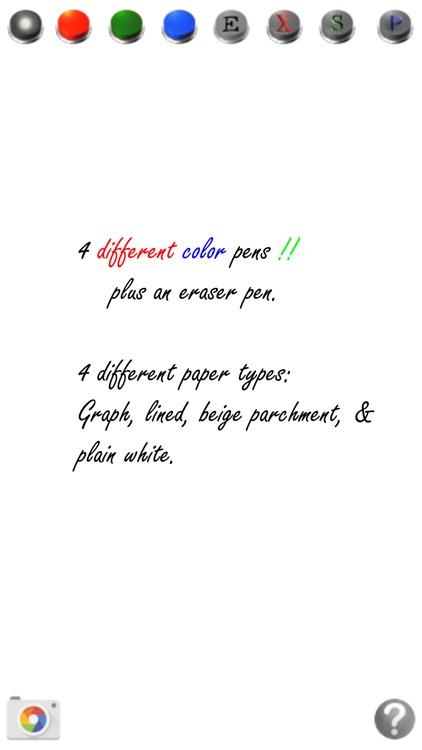 E X S P
4 different color pens !!
plus an eraser pen.
4 different paper types:
Graph, lined, beige parchment, &
plain white.
?